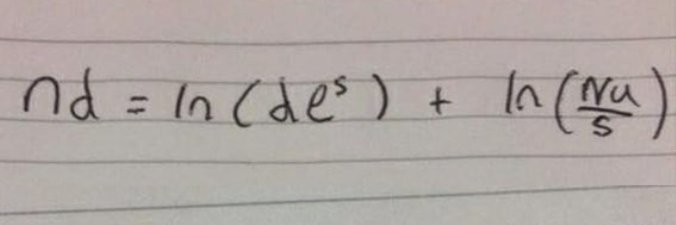 nd = ln(de^s) + ln(Nu/s)